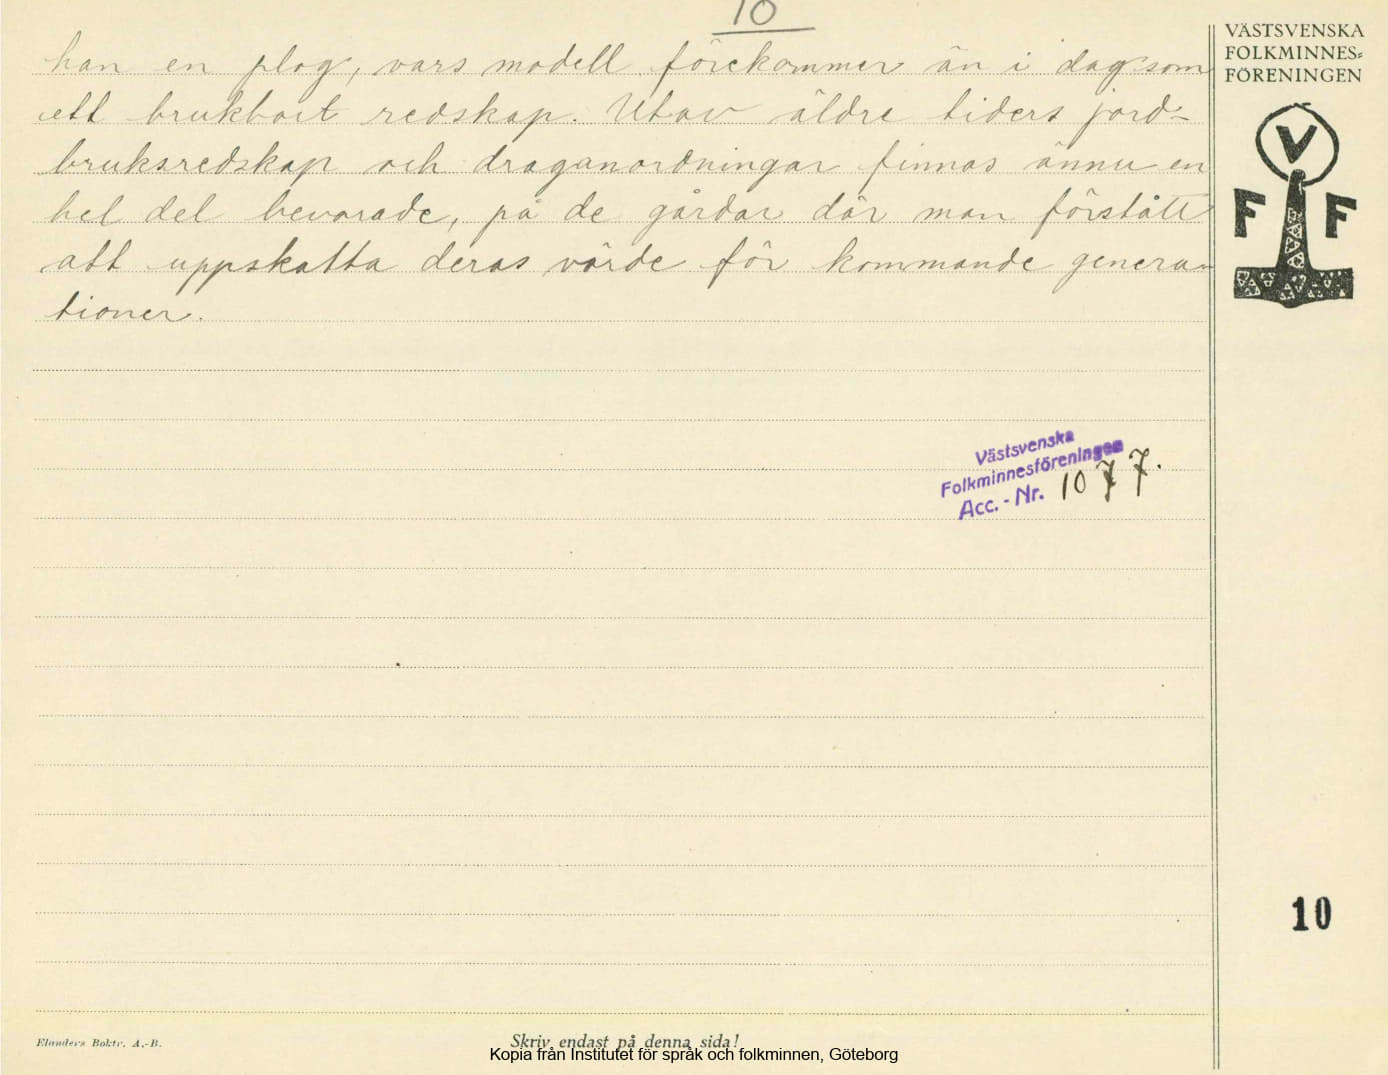 10
VÄSTSVENSKA
FOLKMINNES-
FÖRENINGEN
han en plog, vars modell förekommer än i dag som
ett brukbart redskap. Utav äldre tiders jord-
bruksredskap och draganordningar finnas ännu en
hel del bevarade, på de gårdar där man förstått
att uppskatta deras värde för kommande genera-
tioner.
V
F F
Västsvenska
Folkminnesföreningen
Acc. - Nr. 1077.
10
Elanders Boktr. A.-B.
Skriv endast på denna sida!
Kopia från Institutet för språk och folkminnen, Göteborg